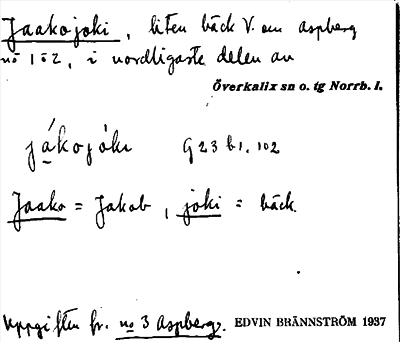 Jaakojoki, liten bäck V. om Aspberg
no 1 o 2, i nordligaste delen av
Överkalix sn o. tg Norrb. l.
jákojóki G 23 b 1. 102
Jaako = Jakob, joki = bäck.
Uppgiften fr. no 3 Aspberg.
EDVIN BRÄNNSTRÖM 1937